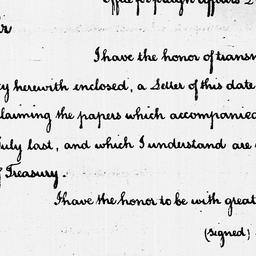 Office for foreign affairs 2
I have the honor of transm
herewith enclosed, a Letter of this date
claiming the papers which accompanied
July last, and which I understand are
Treasury.
I have the honor to be with great
(signed)